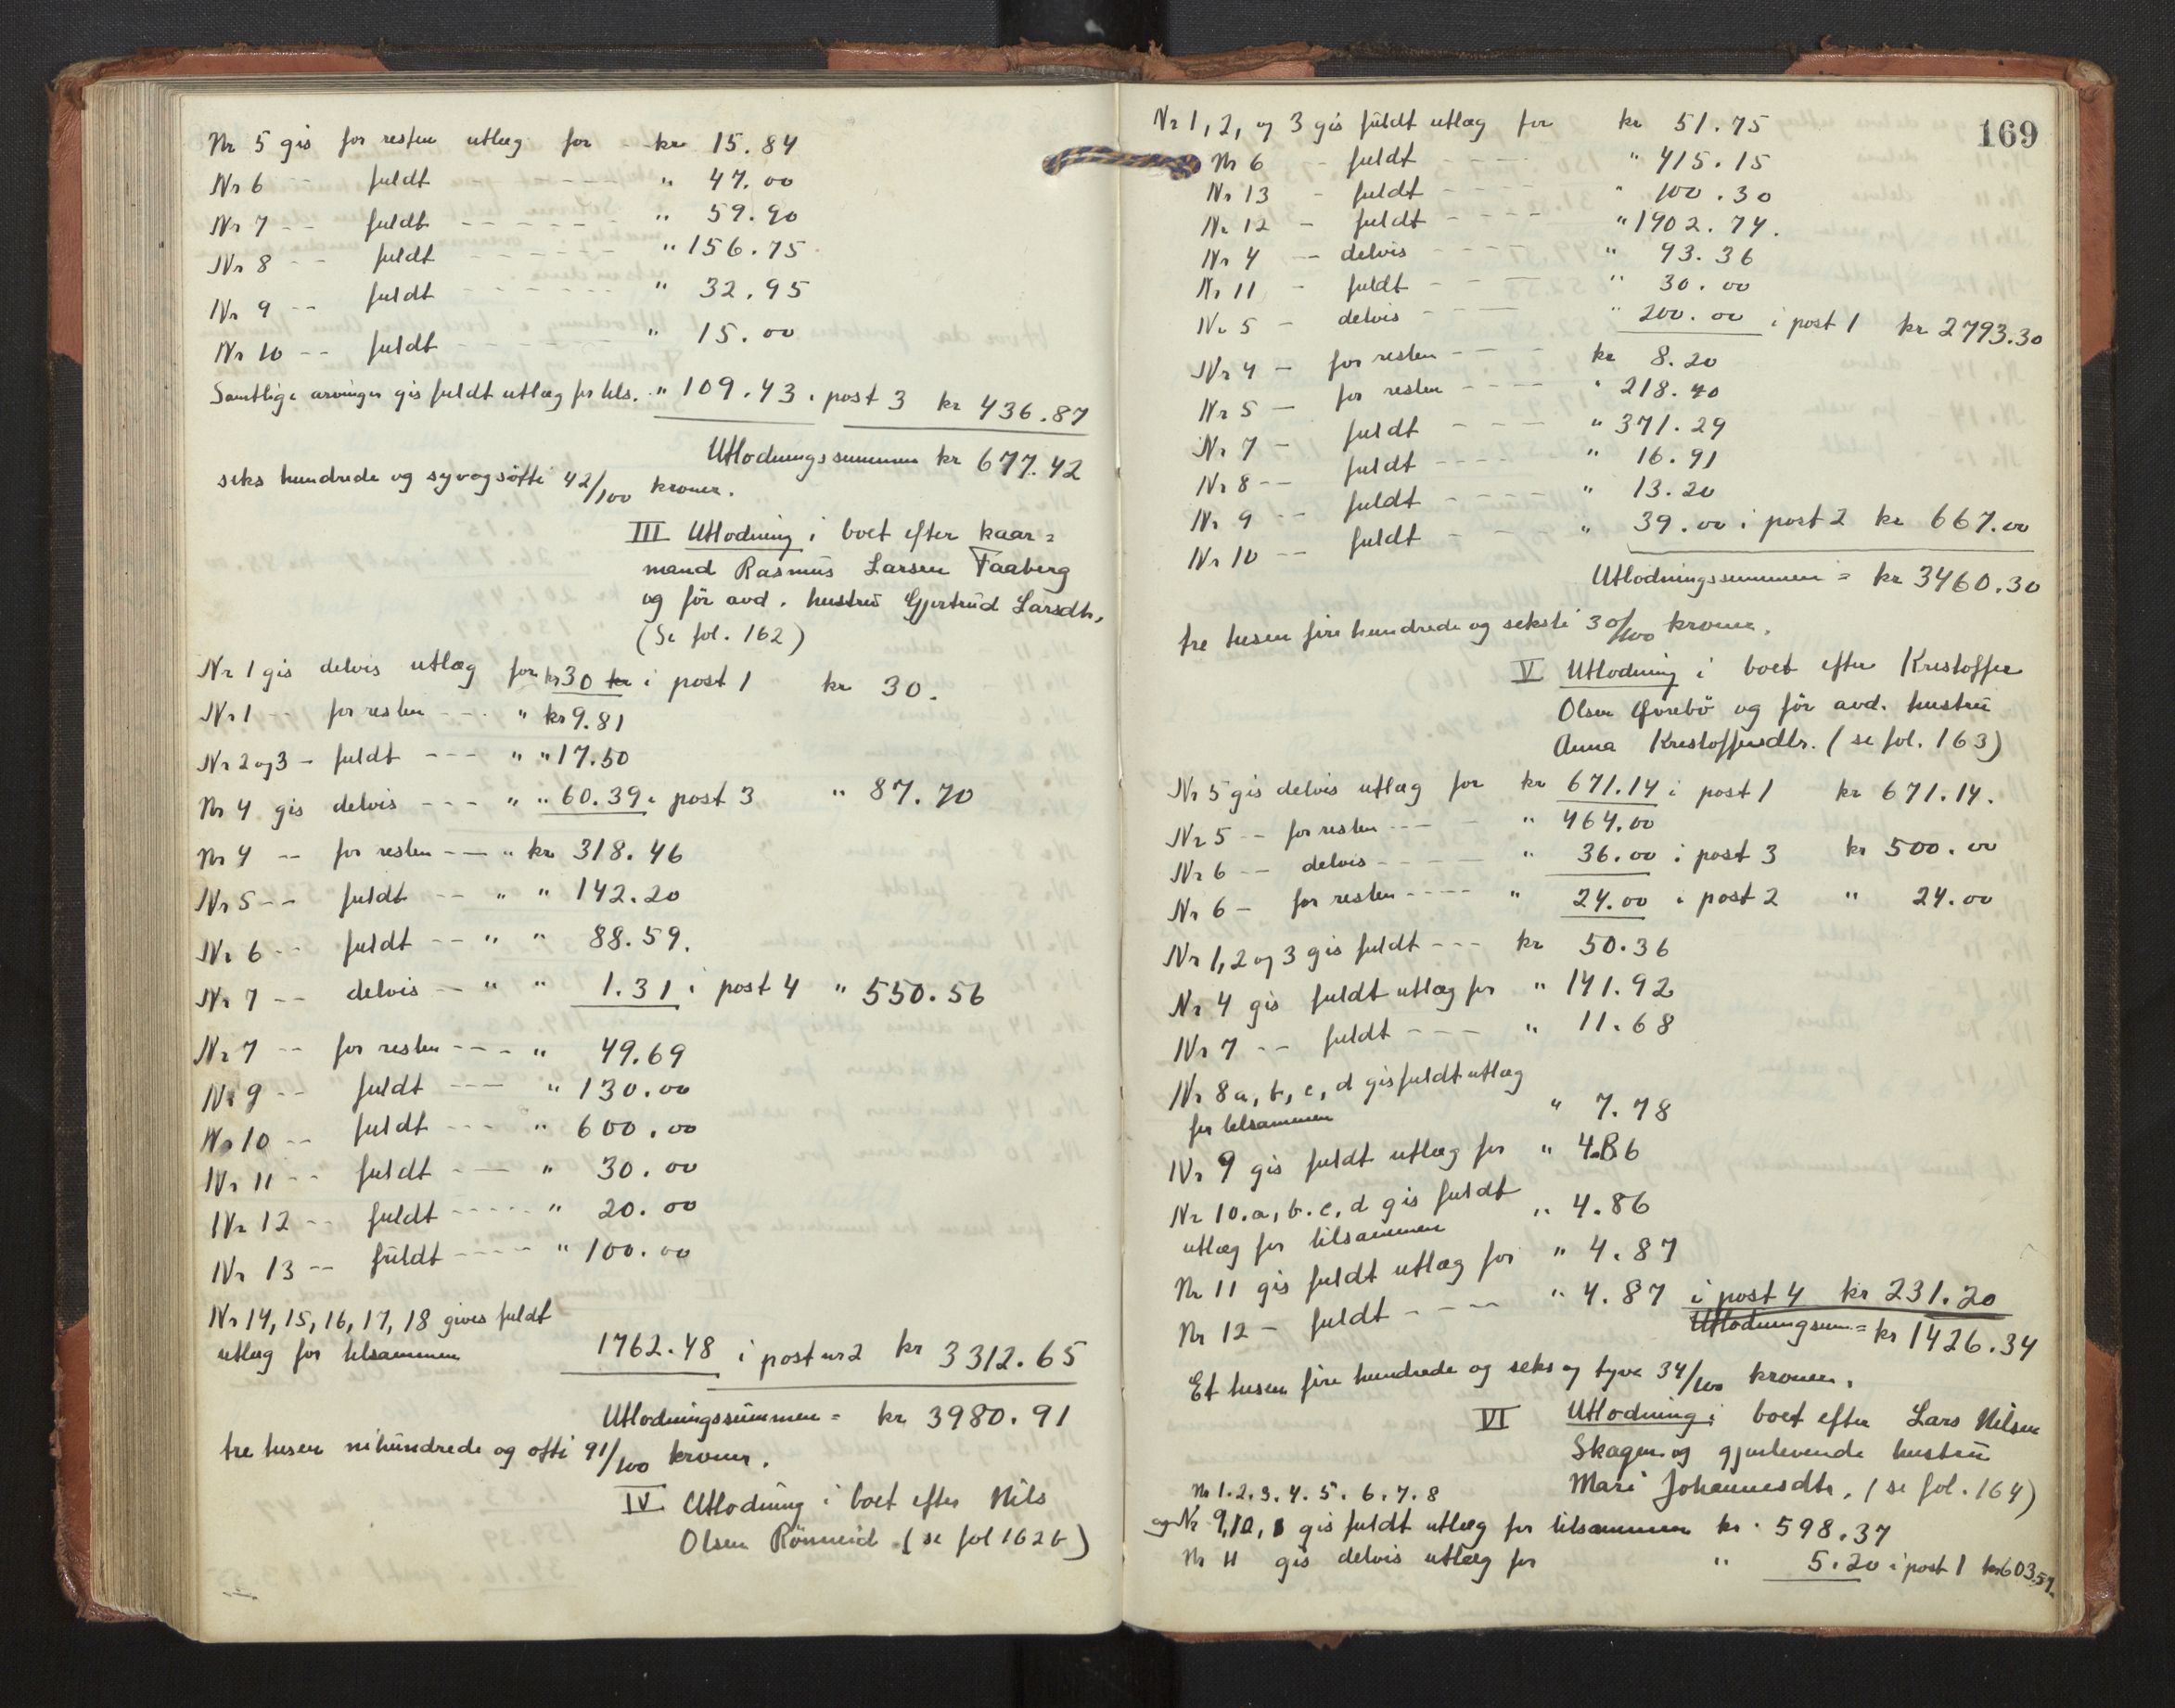 Nr 5 gis for resten utlæg for - kr 15.84
Nr 6 -- fuldt ---- " 47.00
Nr 7 -- fuldt ----- " 59.90
Nr 8 -- fuldt ----- " 156.75
Nr 9 -- fuldt ------ " 32.95
Nr 10 -- fuldt ----- " 15.00
Samtlige arvinger gis fuldt utlæg for tils. " 109.43 i post 3 kr 436.87
Utlodningssummen kr 677.42
seks hundrede og syvogsøtti 42/100 kroner.
III Utlodning i boet efter kaar=
mand Rasmus Larsen Faaberg
og før avd. hustru Gjertrud Larsdtr.
(Se fol. 162)
Nr 1 gis delvis utlæg for kr 30 kr i post 1 kr 30.
Nr 1 -- for resten --- " kr 9.81
Nr 2 og 3 - fuldt --- " " 17.50
Nr 4 gis delvis --- " " 60.39 i post 3 " 87.70
Nr 4 -- for resten -- " kr 318.46
Nr 5 -- fuldt -- " " 142.20
Nr 6 -- fuldt -- " " 88.59.
Nr 7 -- delvis -- " " 1.31 i post 4 " 550.56
Nr 7 -- for resten --- " 49.69
Nr 9 -- fuldt --- " 130.00
Nr 10 -- fuldt --- " 600.00
Nr 11 -- fuldt --- " 30.00
Nr 12 -- fuldt ----- " 20.00
Nr 13 -- fuldt ---- " 100.00
Nr 14, 15, 16, 17, 18 gives fuldt
utlæg for tilsammen 1762.48 i post nr 2 kr 3312.65
Utlodningssummen = kr 3980.91
tre tusen nihundrede og otti 91/100 kroner.
IV Utlodning i boet efter Nils
Olsen Rönneid (se fol 162 b)
169
Nr 1, 2, og 3 gis fuldt utlæg for kr 51.75
Nr 6 - fuldt ---- " 415.15
Nr 13 - fuldt ---- " 100.30
Nr 12 - fuldt ---- " 1902.74.
Nr 4 -- delvis ---- " 93.36
Nr 11 - fuldt --- " 30.00
Nr 5 - delvis ---- " 200.00 i post 1 kr 2793.30
Nr 4 - for resten --- kr 8.20
Nr 5 - for resten ---- " 218.40
Nr 7 - fuldt ---- " 371.29
Nr 8 -- fuldt ---- " 16.91
Nr 9 -- fuldt ---- " 13.20
Nr 10 -- fuldt ---- " 39.00 i post 2 kr 667.00
Utlodningssummen = kr 3460.30
tre tusen fire hundrede og seksti 30/100 kroner.
V Utlodning i boet efter Kristoffer
Olsen Øvrebö og før avd. hustru
Anna Kristoffersdtr. (se fol. 163)
Nr 5 gis delvis utlæg for kr 671.14 i post 1 kr 671.14.
Nr 5 -- for resten --- - " 464.00
Nr 6 -- delvis ----- " 36.00 i post 3 kr 500.00
Nr 6 - for resten ---- " 24.00 i post 2 " 24.00
Nr 1, 2 og 3 gis fuldt --- kr 50.36
Nr 4 gis fuldt utlæg for " 141.92
Nr 7 -- fuldt --- " 11.68
Nr 8 a, b, c, d gis fuldt utlæg
for tilsammen " 7.78
Nr 9 gis fuldt utlæg for " 4.86
Nr 10. a, b. c, d gis fuldt
utlæg for tilsammen " 4.86
Nr 11 gis fuldt utlæg for " 4.87
Nr 12 - fuldt ---- " 4.87 i post 4 kr 231.20
Utlodningsum = kr 1426.34
Et tusen fire hundrede og seks og tyve 34/100 kroner.
VI Utlodning i boet efter Lars Nilsen
Skagen og gjenlevende hustru
Mari Johannesdtr. (se fol. 164)
Nr 1. 2. 3. 4. 5. 6. 7. 8
og Nr 9, 10, gis fuldt utlæg for tilsammen kr. 598.37
Nr 11 gis delvis utlæg for " 5.20 i post 1 kr 603.57.